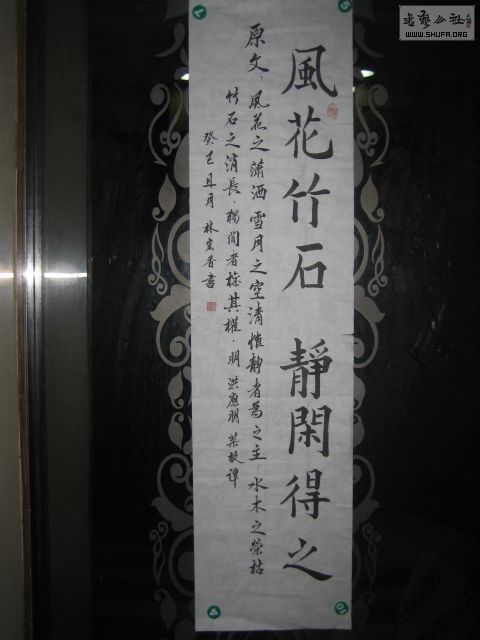 風花竹石 靜閑得之
原文：風花之潇洒 雪月之空清 惟靜者為之主，水木之榮枯
竹石之消長，獨閒者操其權．明 洪應明 菜根譚
癸巳 月 林宏香書
書艺公社
WWW.SHUFA.ORG